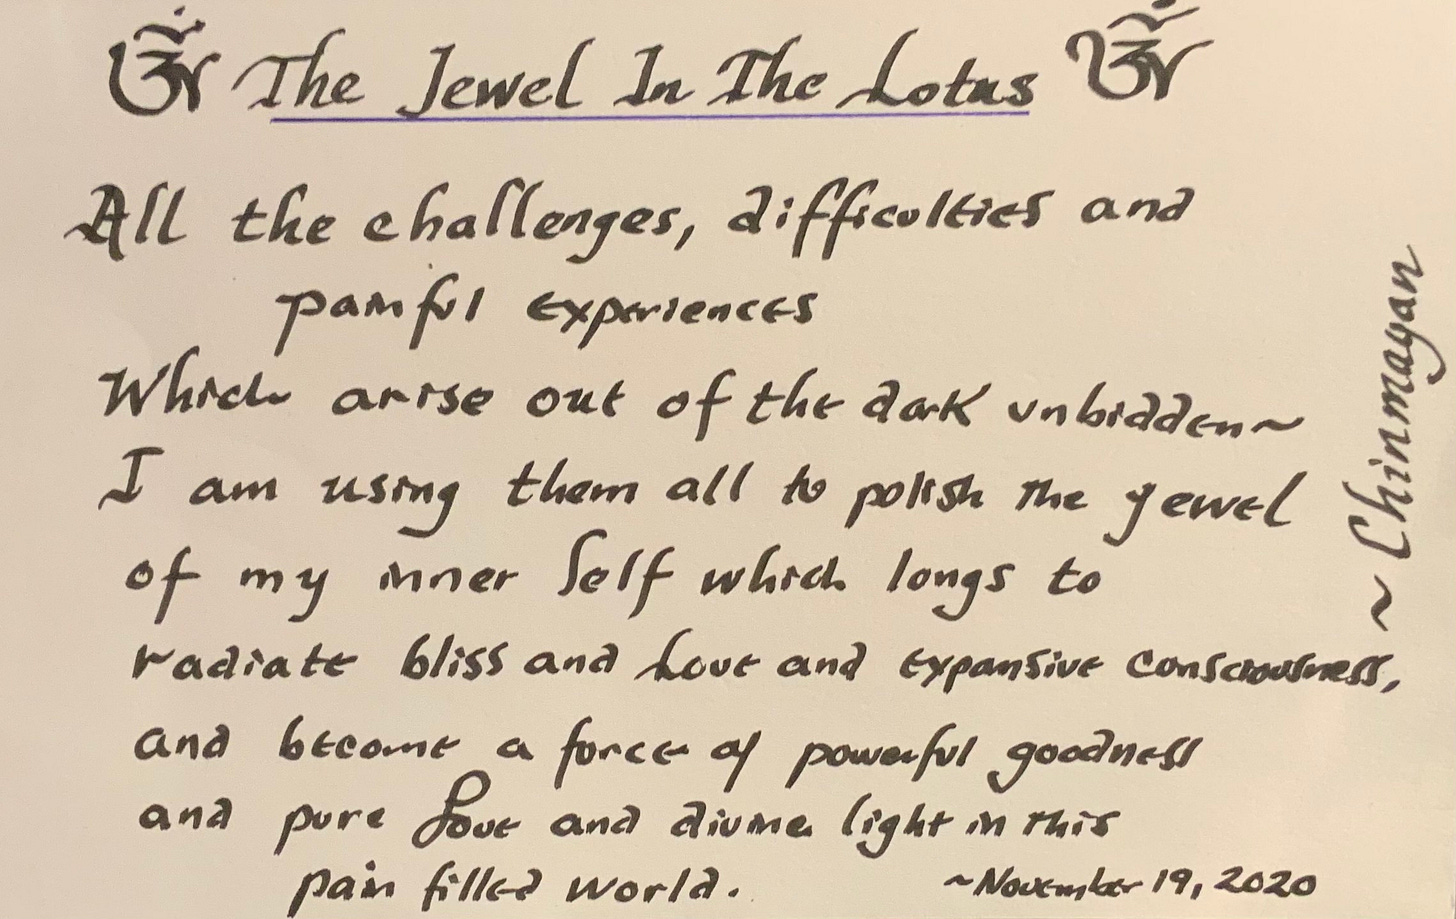 ॐ The Jewel In The Lotus ॐ
All the challenges, difficulties and
painful experiences
Which arise out of the dark unbidden~
I am using them all to polish the jewel
of my inner Self which longs to
radiate bliss and Love and expansive consciousness,
and become a force of powerful goodness
and pure Love and divine light in this
pain filled world.
~November 19, 2020
~ Chinmayan